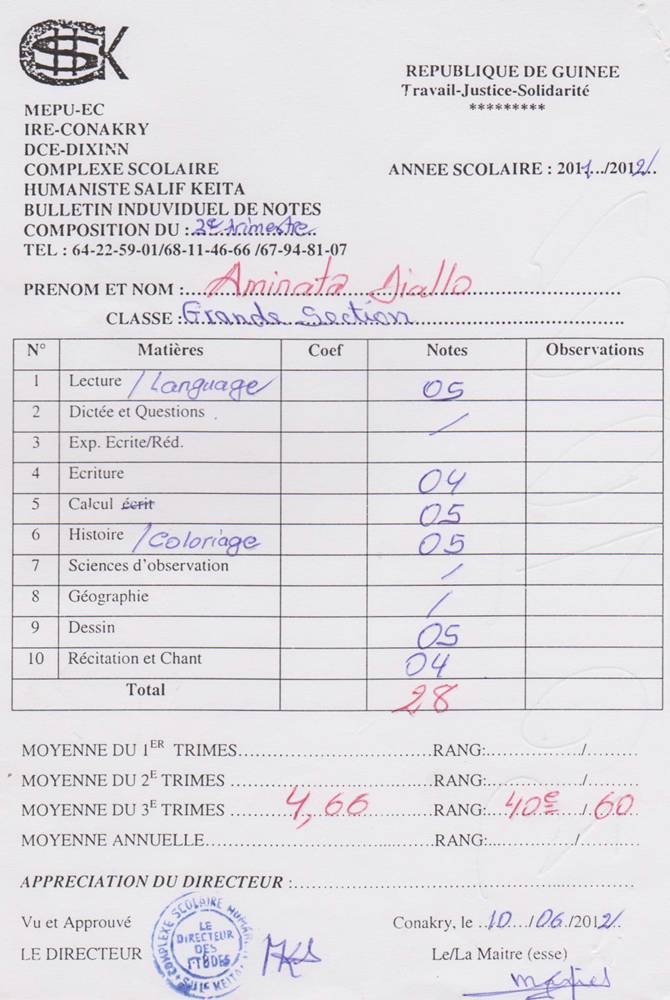 HSK
REPUBLIQUE DE GUINEE
Travail-Justice-Solidarité
*********
MEPU-EC
IRE-CONAKRY
DCE-DIXINN
COMPLEXE SCOLAIRE
ANNEE SCOLAIRE : 2011../2012/..
HUMANISTE SALIF KEITA
BULLETIN INDUVIDUEL DE NOTES
COMPOSITION DU :..2e trimestre..
TEL : 64-22-59-01/68-11-46-66 /67-94-81-07
PRENOM ET NOM :... Aminata Diallo ...
CLASSE :Grande Section...
N° Matières Coef Notes Observations
1 Lecture /Language 05
2 Dictée et Questions /
3 Exp. Ecrite/Réd.
4 Ecriture 04
5 Calcul écrit 05
6 Histoire /Coloriage 05
7 Sciences d'observation /
8 Géographie /
9 Dessin 05
10 Récitation et Chant 04
Total 28
MOYENNE DU 1ER TRIMES...RANG:.../...
MOYENNE DU 2E TRIMES ...RANG:.../...
MOYENNE DU 3E TRIMES ...4,66...RANG:...40e.../.60
MOYENNE ANNUELLE...RANG:.../...
APPRECIATION DU DIRECTEUR :...
Vu et Approuvé
Conakry, le ..10.../06./2012/.
LE DIRECTEUR
Le/La Maitre (esse)
COMPLEXE SCOLAIRE HUMANI
SALIF KEITA
LE
DIRECTEUR
DES
ETUDES
MKS